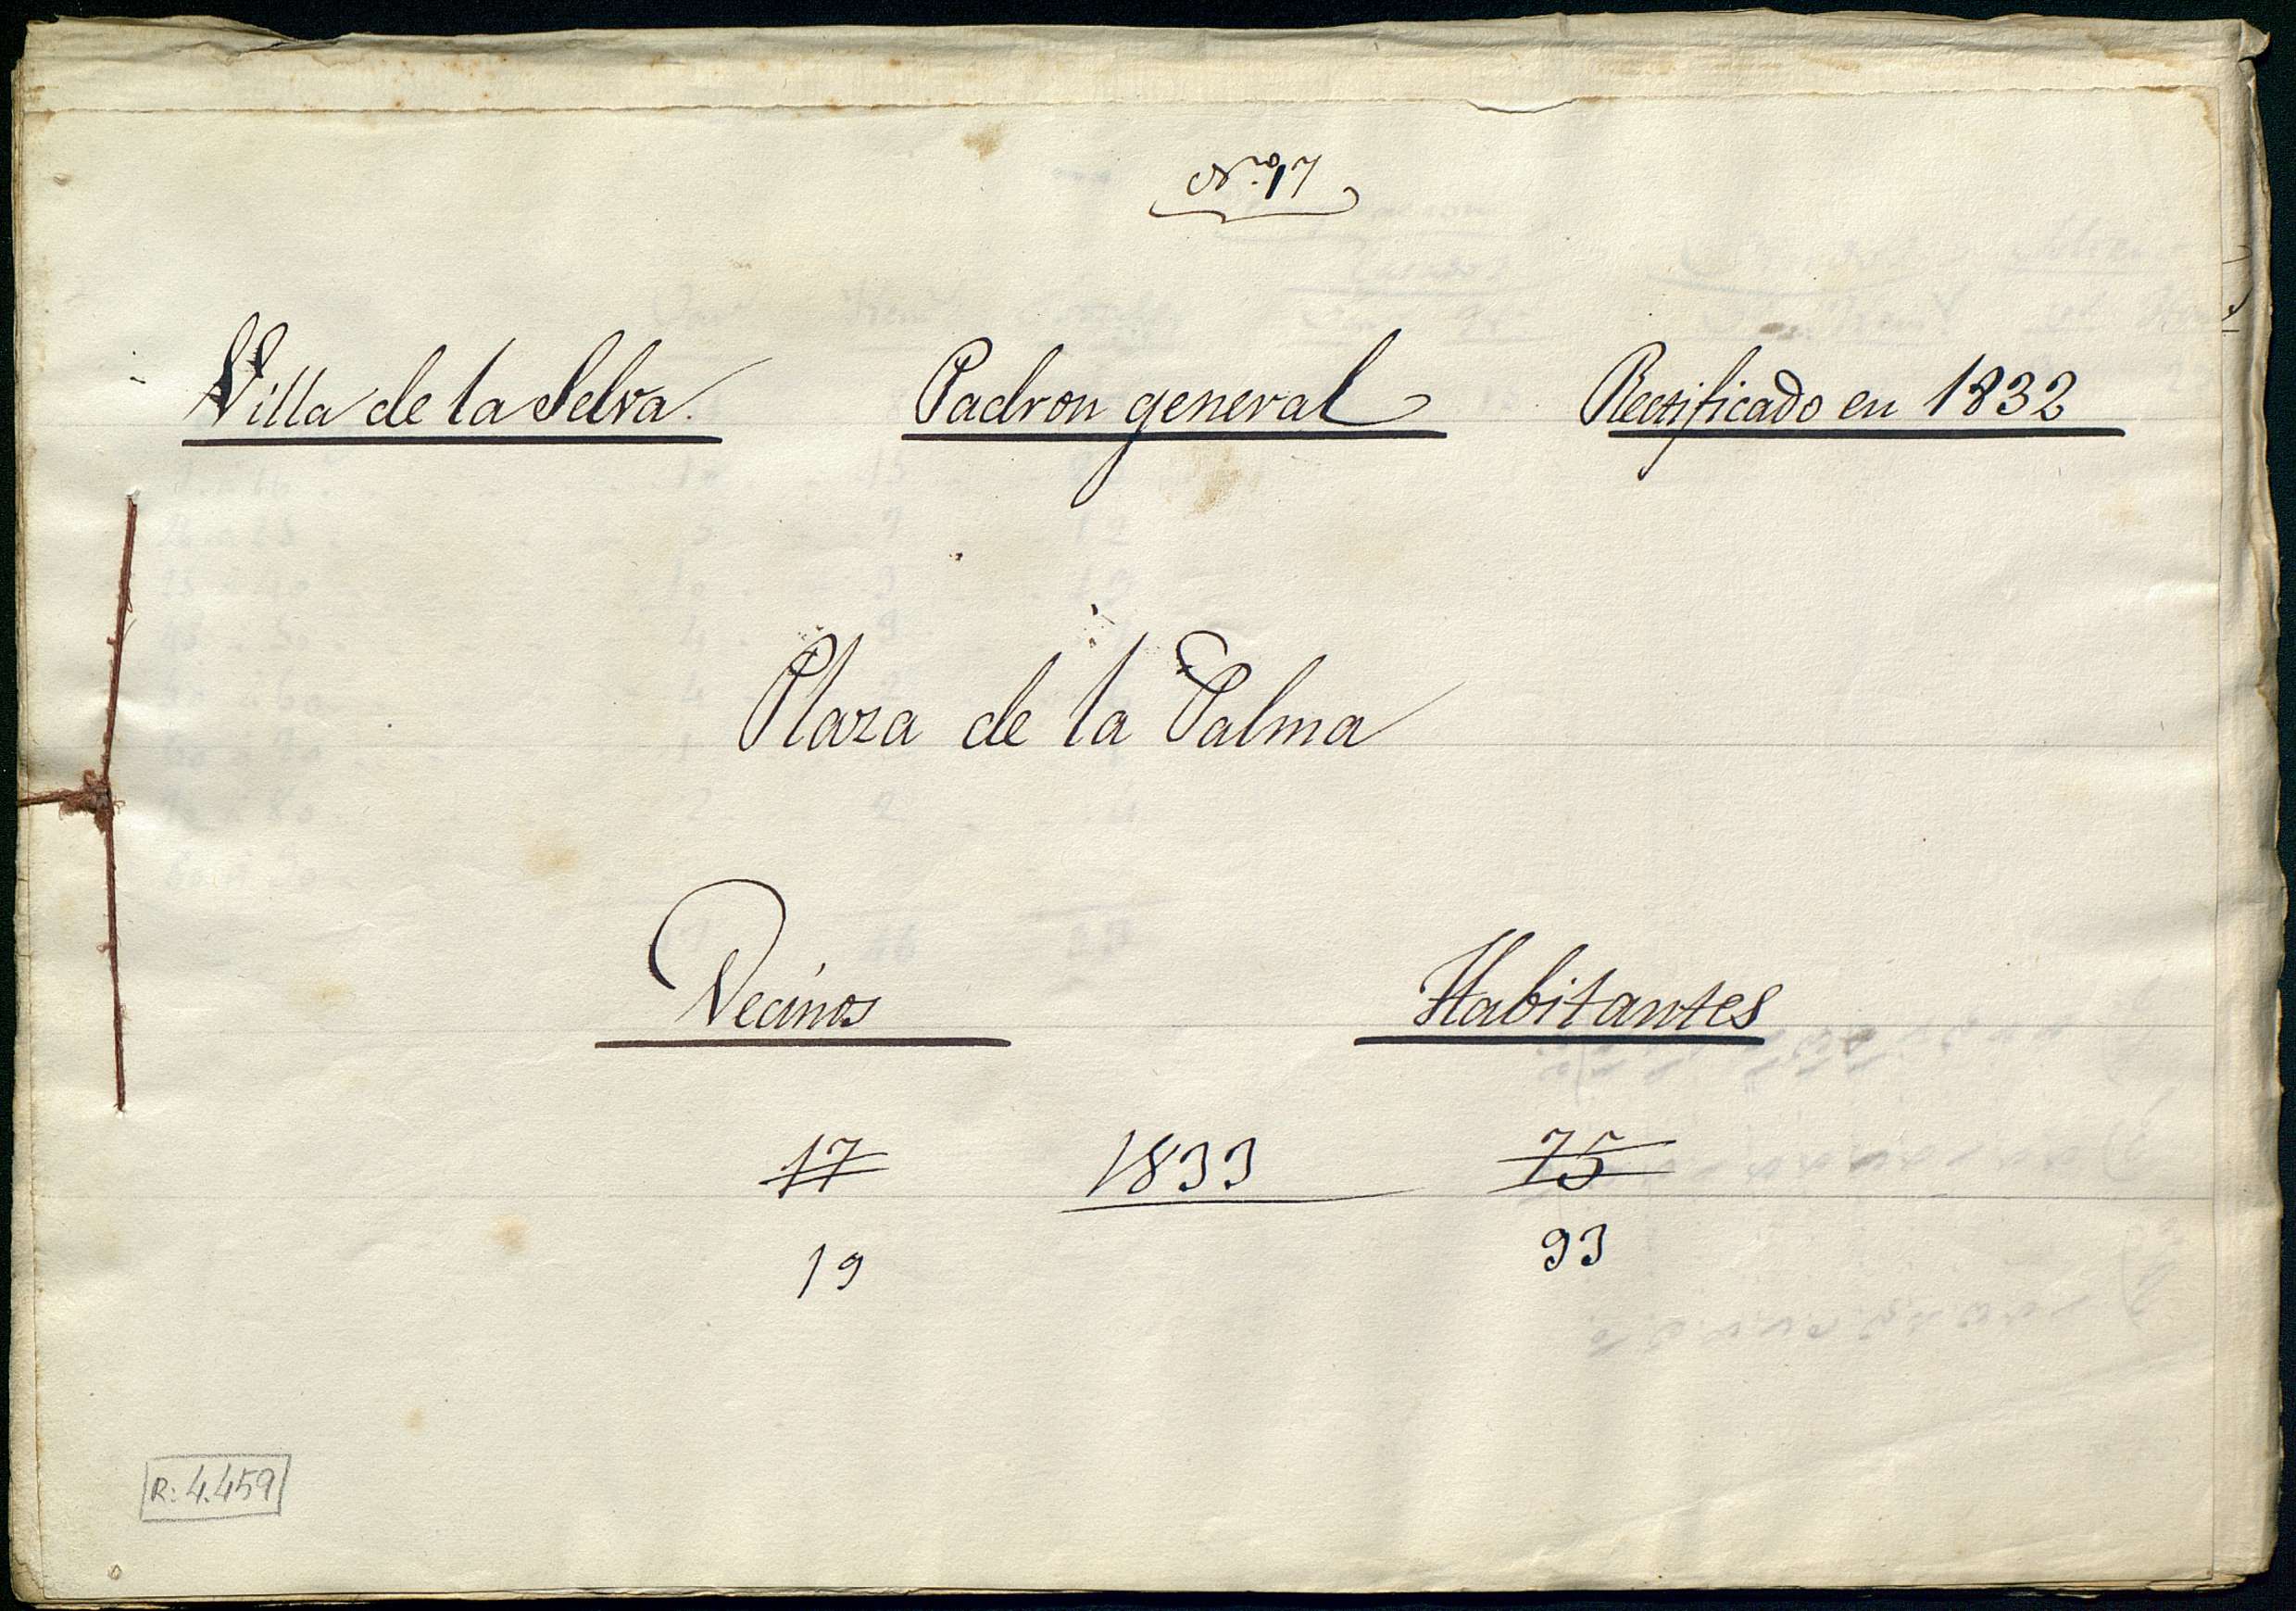 N.º 17
Villa de la Selva. Padron general Rectificado en 1832
Plaza de la Palma
Vecinos Habitantes
17 1833 75
19 93
R: 4.459